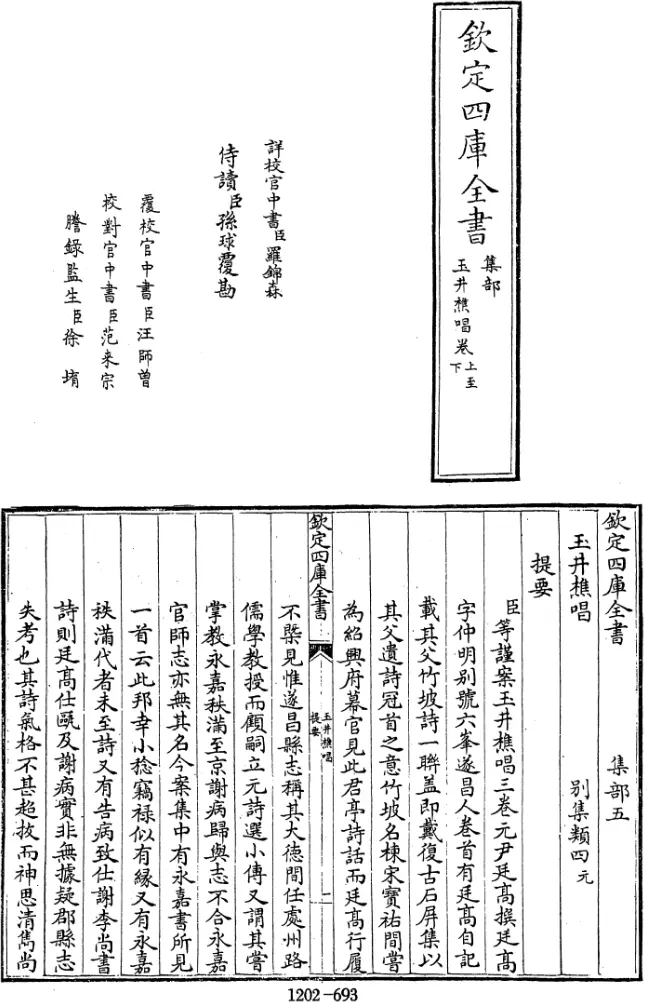 欽定四庫全書
集部
玉井樵唱卷上至下
詳校官中書臣羅錦森
侍讀臣孫球覆勘
覆校官中書臣汪師曾
校對官中書臣范來宗
謄錄監生臣徐堉
欽定四庫全書 集部五
玉井樵唱 別集類四元
提要
臣等謹案玉井樵唱三卷元尹廷高撰廷高
字仲明別號六峯遂昌人卷首有廷高自記
載其父竹坡詩一聯盖即戴復古石屏集以
其父遺詩冠首之意竹坡名棟宋寶祐間嘗
為紹興府幕官見此君亭詩話而廷高行履
欽定四庫全書
玉井樵唱
提要
二
不槩見惟遂昌縣志稱其大德間任處州路
儒學教授而顧嗣立元詩選小傳又謂其嘗
掌教永嘉秩滿至京謝病歸與志不合永嘉
官師志亦無其名今案集中有永嘉書所見
一首云此邦幸小稔竊禄似有緣又有永嘉
秩滿代者未至詩又有告病致仕謝李尚書
詩則廷高仕甌及謝病實非無據疑郡縣志
失考也其詩氣格不甚超拔而神思清雋尚
1202-693